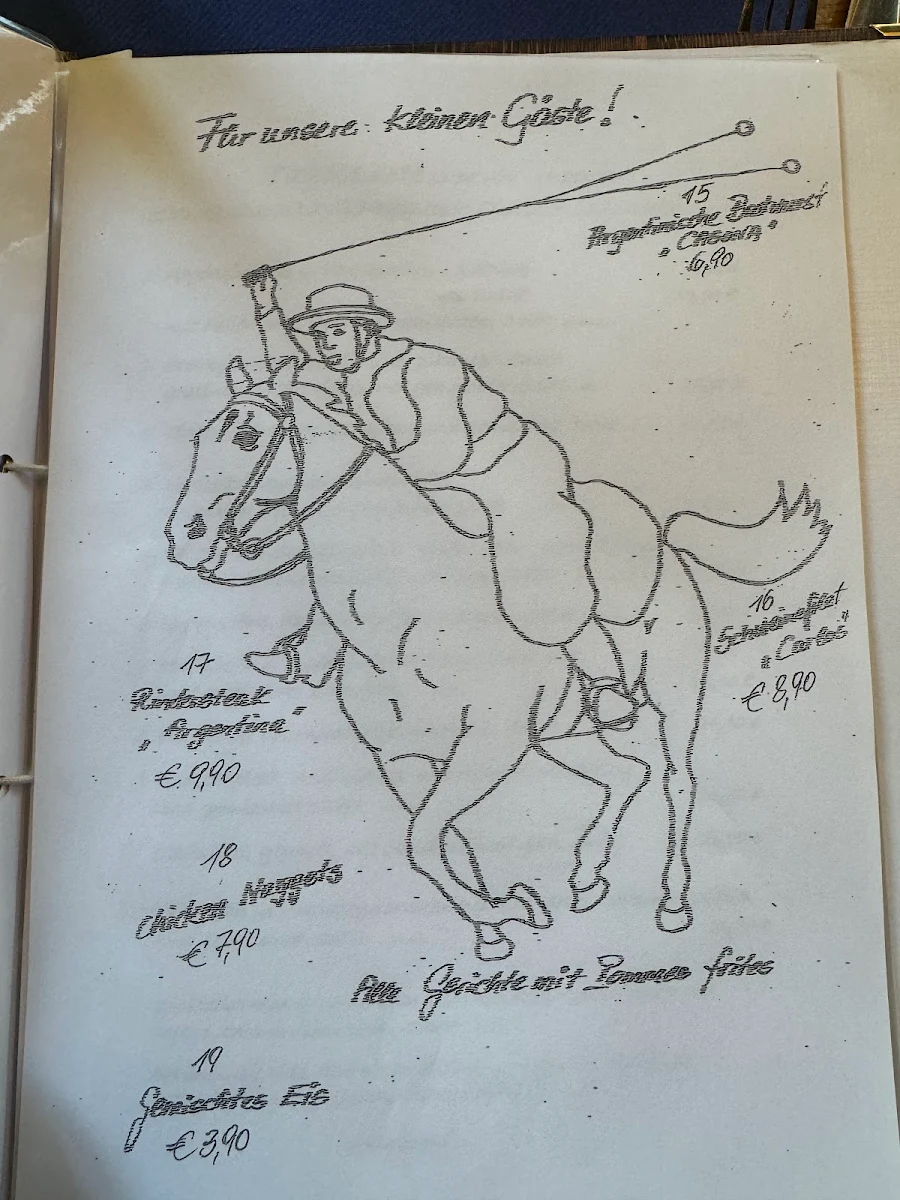 Für unsere kleinen Gäste!
15
Argentinische Bratwurst
"
6,90
16
Schweinefilet
„Carlos"
€ 8,90
17
Rindersteak
„Argentina"
€ 9,90
18
Chicken Nuggets
€ 7,90
Alle Gerichte mit Pommes frites
19
Gemischtes Eis
€ 3,90